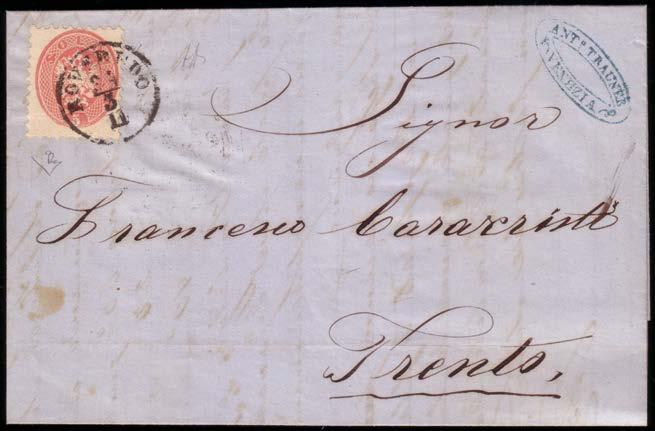 ROVEREDO
3
ANT.º TRAUNER
VENEZIA
Signor
Francesco Cararristi
Trento,